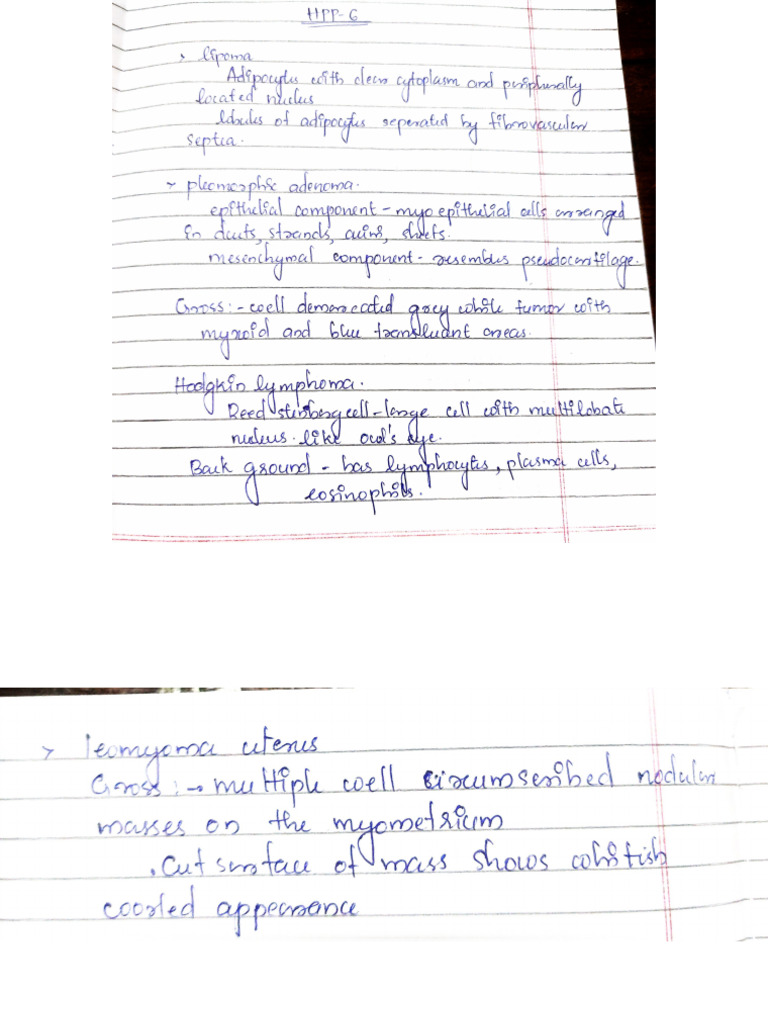 HPP-6
> lipoma
Adipocytes with clear cytoplasm and peripherally
located nucleus
lobules of adipocytes seperated by fibrovascular
septia.
> pleomorphic adenoma.
epithelial component - myoepithelial cells arranged
in ducts, strands, acins, sheets.
mesenchymal component - resembles pseudocartilage.
Gross:- well demarcated grey white tumor with
myxoid and blue translucent areas.
Hodgkin lymphoma.
Reed sternberg cell - large cell with multilobate
nucleus. like owl's eye.
Back ground - has lymphocytes, plasma cells,
eosinophils.
> leomyoma uterus
Gross:→ multiple well circumscribed nodular
masses on the myometrium
. Cut surface of mass shows whitish
woorled appearance